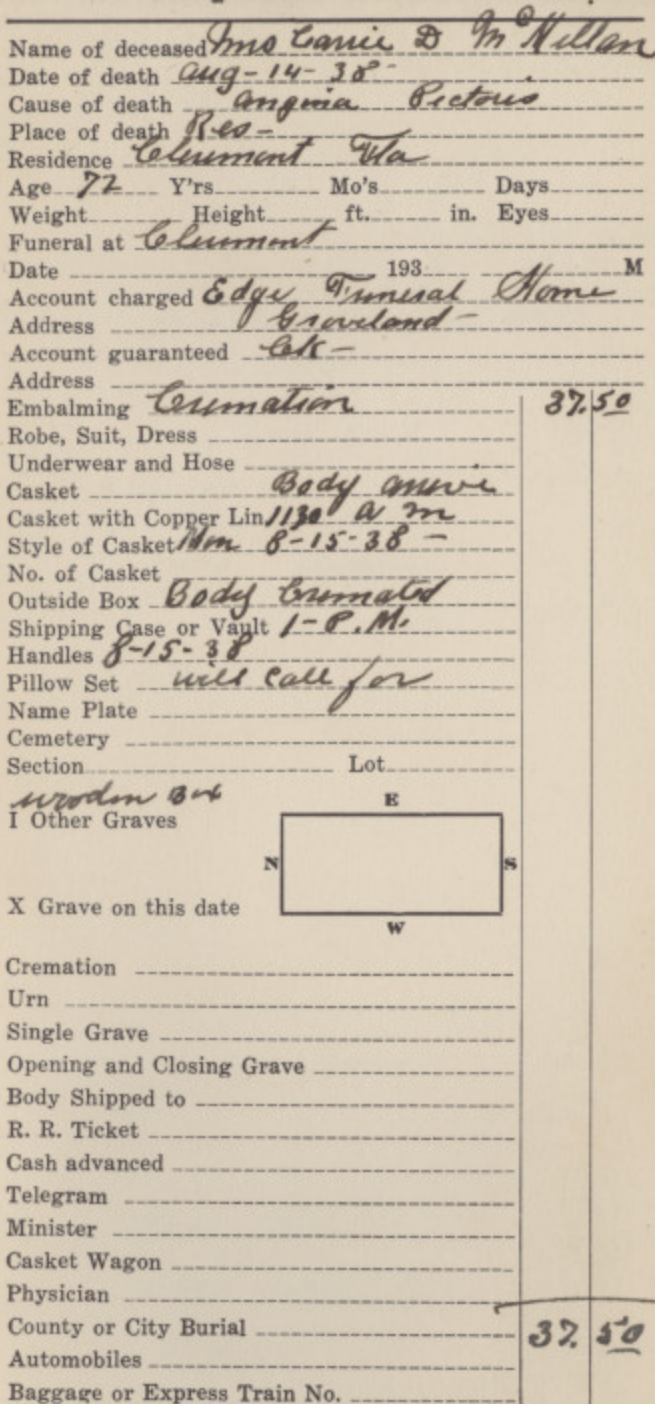 Name of deceased Mrs Carrie D McMillan
Date of death Aug-14-38
Cause of death Angina Pectoris
Place of death Res-
Residence Clermont Fla
Age 72 Y'rs Mo's Days
Weight Height ft. in. Eyes
Funeral at Clermont
Date 193 M
Account charged Edge Funeral Home
Address Groveland-
Account guaranteed Ck-
Address
Embalming Cremation 37.50
Robe, Suit, Dress
Underwear and Hose
Casket Body arrive
Casket with Copper Lin 1130 a m
Style of Casket Mon 8-15-38 -
No. of Casket
Outside Box Body Cremated
Shipping Case or Vault 1-P.M.
Handles 8-15-38
Pillow Set will call for
Name Plate
Cemetery
Section Lot
wooden Box
E
I Other Graves
N S
X Grave on this date
W
Cremation
Urn
Single Grave
Opening and Closing Grave
Body Shipped to
R. R. Ticket
Cash advanced
Telegram
Minister
Casket Wagon
Physician
County or City Burial 37.50
Automobiles
Baggage or Express Train No.